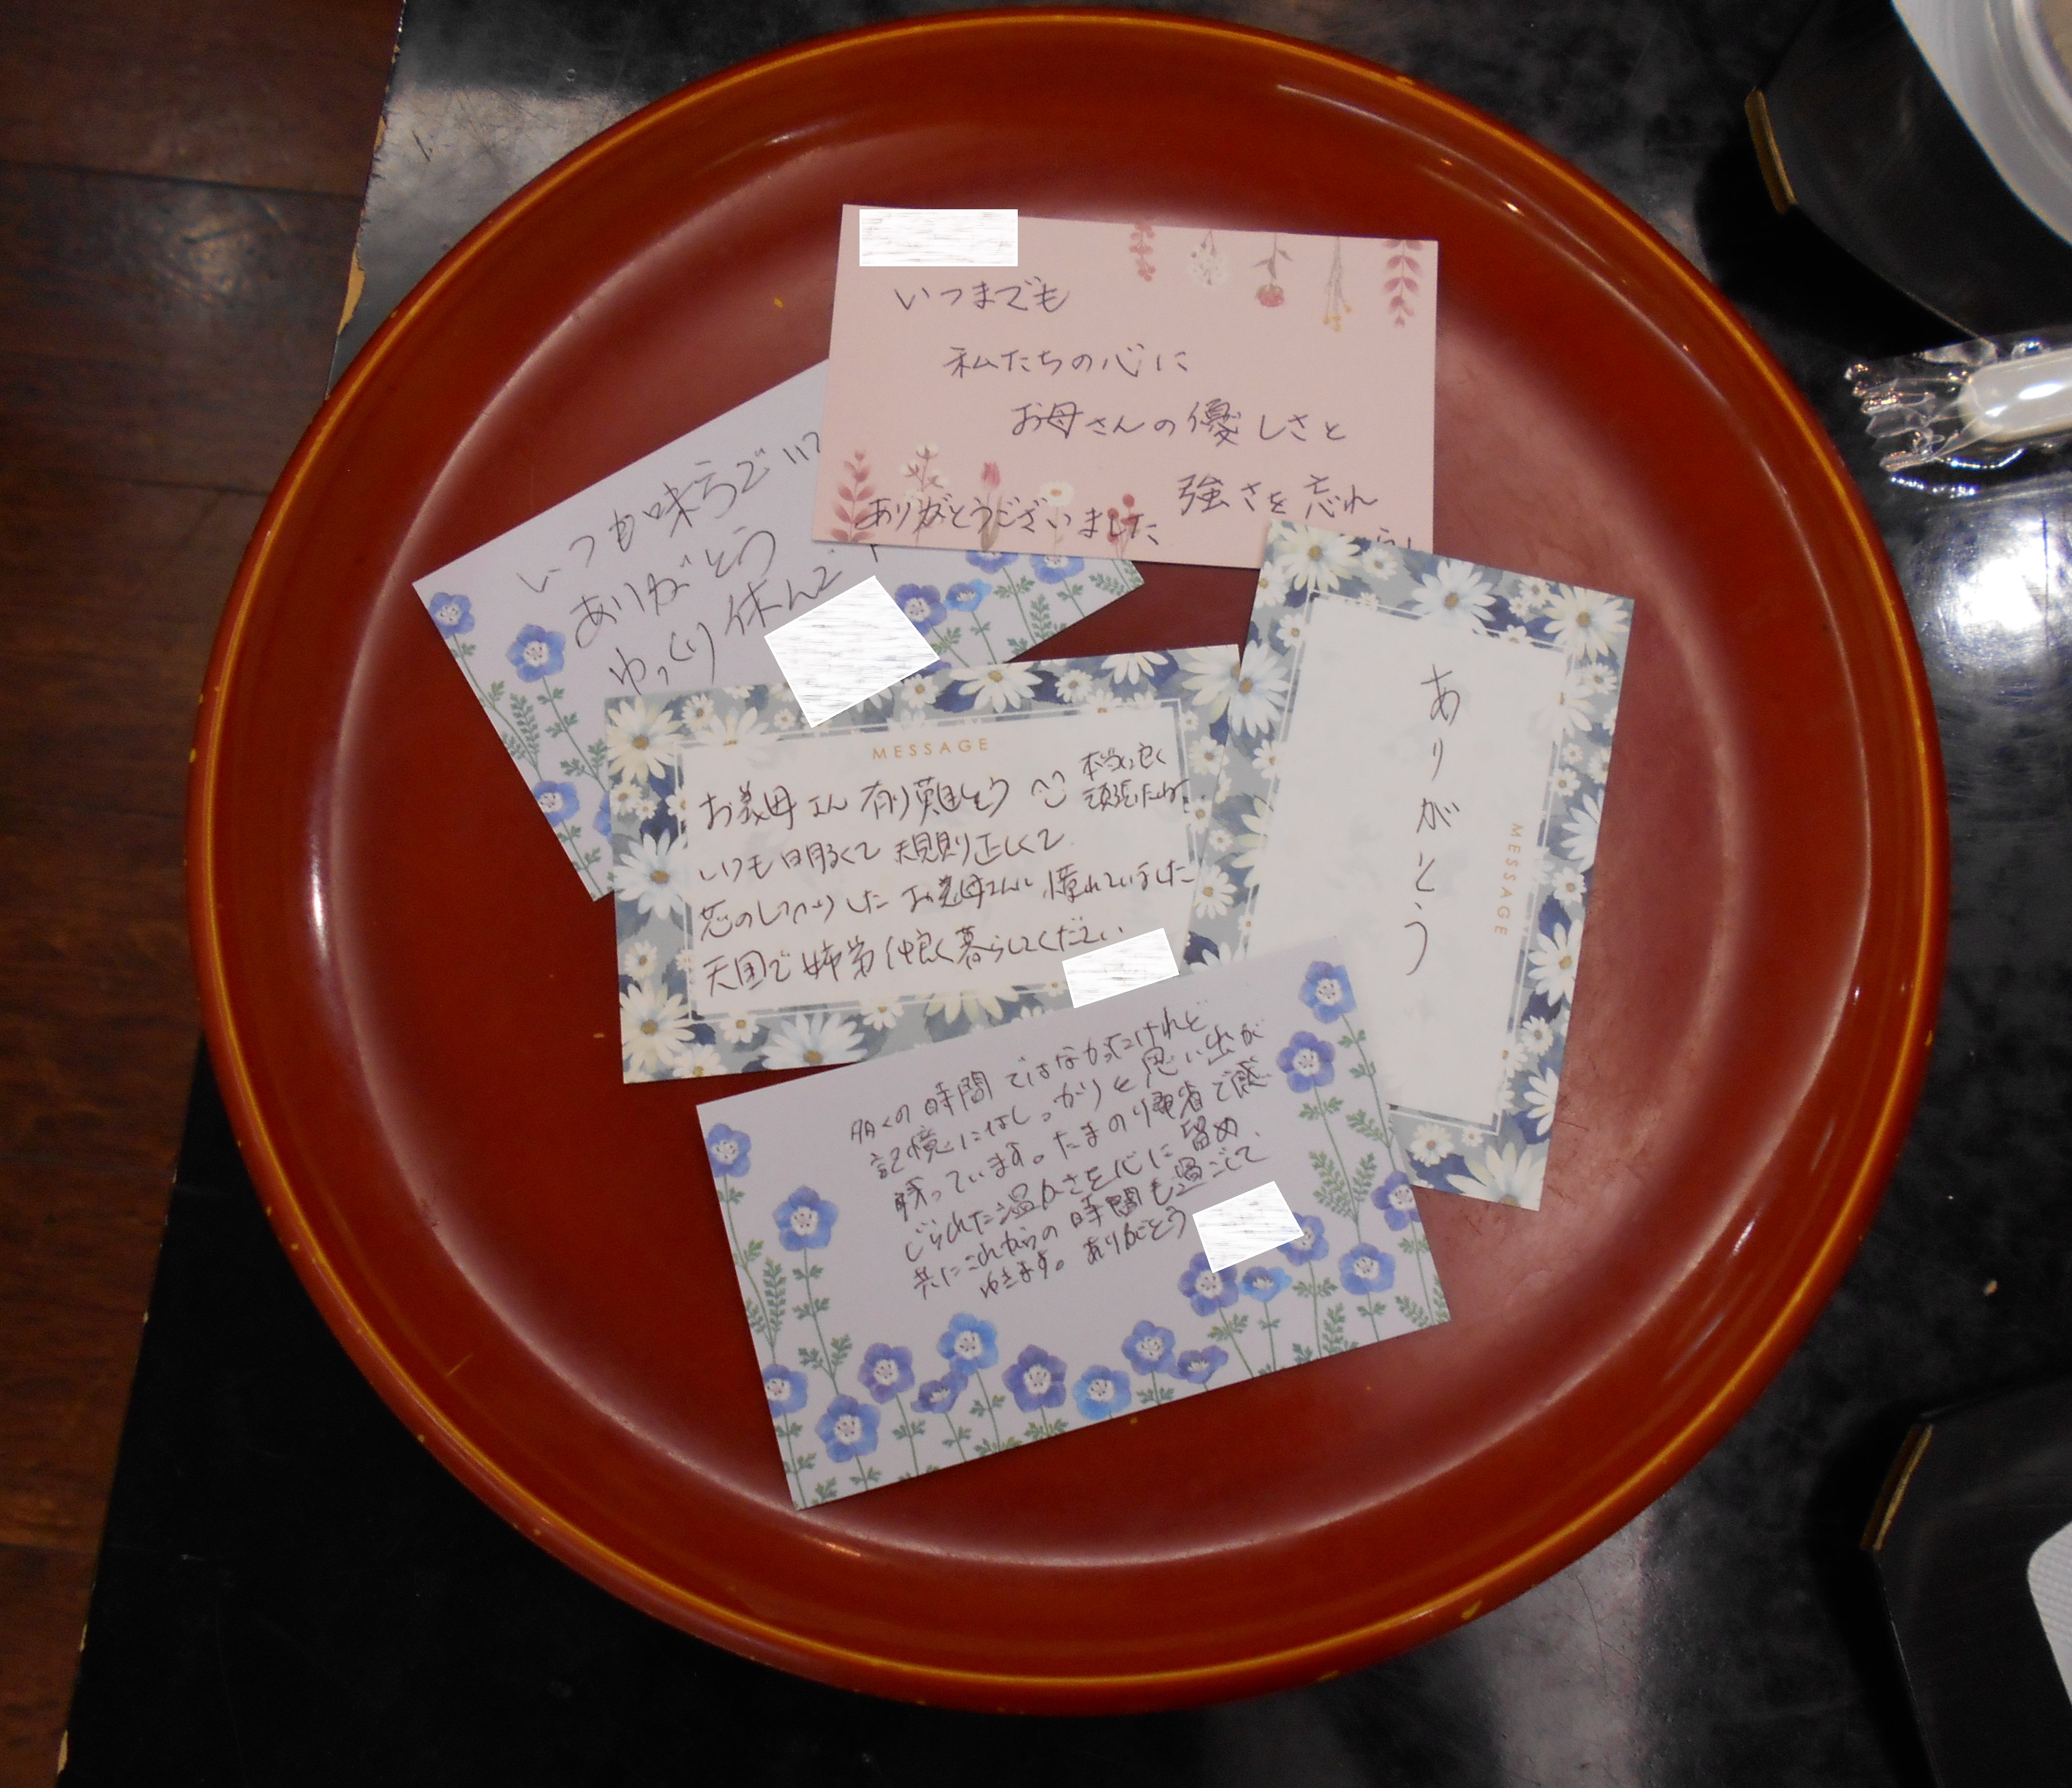 いつまでも
私たちの心に
お母さんの優しさと
強さを忘れ
ありがとうございました
いつも味方でいて
ありがとう
ゆっくり休んで
MESSAGE
お義母さん有り難とう
本当に良く
頑張ったね
いつも明るくて規則正しくて
芯のしっかりしたお義母さんに憧れていました
天国で姉弟仲良く暮らしてください
MESSAGE
ありがとう
多くの時間ではなかったけれど
記憶にはしっかりと思い出が
残っています。たまのり帰省で感
じられた温かさを心に留め、
共にこれからの時間も過ごして
ゆきます。ありがとう